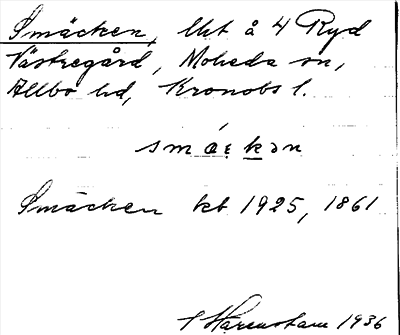 Smäcken, lht å 4 Ryd
Västregård, Moheda sn,
Allbo hd, Kronobs l.
smác̨kən
Smäcken kb 1925, 1861
1936